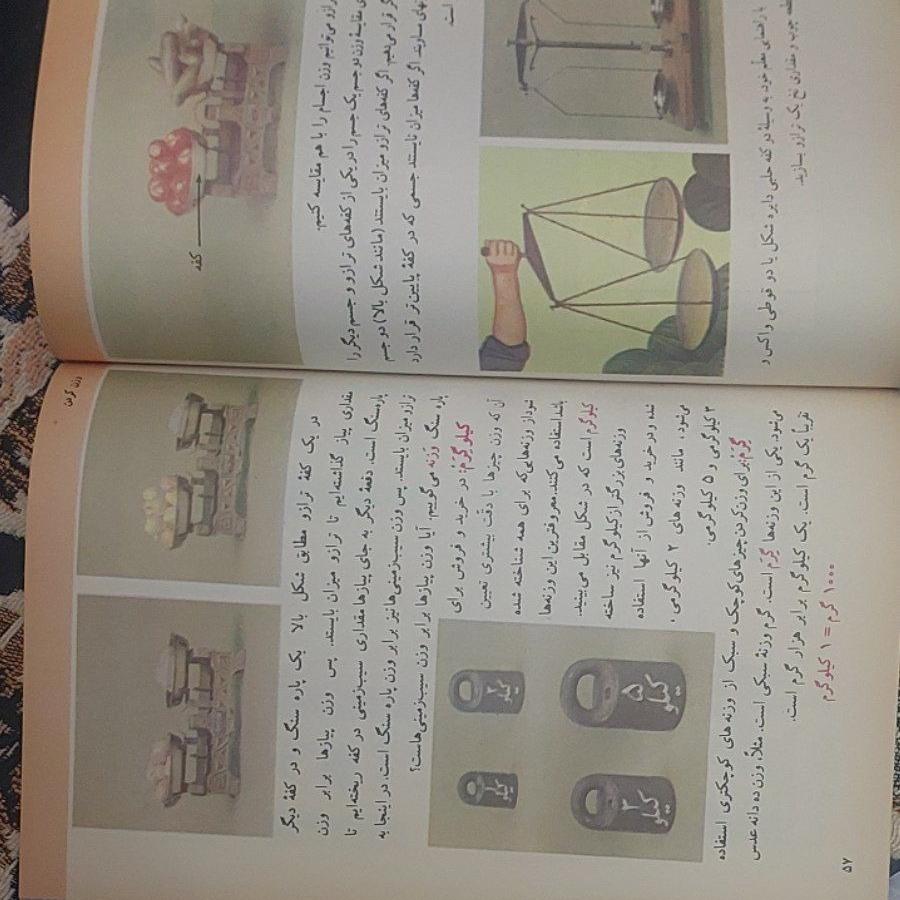 کفه
می‌توانیم وزن اجسام را با هم مقایسه کنیم.
مقایسهٔ وزن دو جسم یک جسم را در یکی از کفه‌های ترازو و جسم دیگر را
قرار می‌دهیم. اگر کفه‌های ترازو میزان بایستند (مانند شکل بالا) دو جسم
اگر کفه‌ها میزان نایستند جسمی که در کفهٔ پایین‌تر قرار دارد
است
با راهنمایی معلم خود به وسیلهٔ دو کفه حلبی دایره شکل یا دو قوطی واکس و
چوب و مقداری نخ یک ترازو بسازید.
وزن کردن
در یک کفهٔ ترازو مطابق شکل بالا یک پاره سنگ و در کفهٔ دیگر
مقداری پیاز گذاشته‌ایم تا ترازو میزان بایستد. پس وزن پیازها برابر وزن
پاره‌سنگ است. دفعهٔ دیگر به جای پیازها مقداری سیب‌زمینی در کفه ریخته‌ایم تا
ترازو میزان بایستد. پس وزن سیب‌زمینی‌ها نیز برابر وزن پاره سنگ است. در اینجا به
پاره سنگ وزنه می‌گوییم. آیا وزن پیازها برابر وزن سیب‌زمینی‌ها است؟
کیلوگرم: در خرید و فروش برای
آن که وزن چیزها با دقت بیشتری تعیین
شود از وزنه‌هایی که برای همه شناخته شده
باشد استفاده می‌کنند. معروفترین این وزنه‌ها
کیلوگرم است که در شکل مقابل می‌بینید.
وزنه‌های بزرگتر از کیلوگرم نیز ساخته
شده و در خرید و فروش از آنها استفاده
می‌شود، مانند وزنه‌های ۲ کیلوگرمی،
۳ کیلوگرمی و ۵ کیلوگرمی.
۲ کیلو
۱ کیلو
۵ کیلو
۳ کیلو
گرم: برای وزن کردن چیزهای کوچک و سبک از وزنه‌های کوچکتری استفاده
می‌شود. یکی از این وزنه‌ها گرم است. گرم وزنهٔ سبکی است. مثلاً، وزن ده دانه عدس
تقریباً یک گرم است. یک کیلوگرم برابر هزار گرم است.
۱۰۰۰ گرم = ۱ کیلوگرم
۵۷